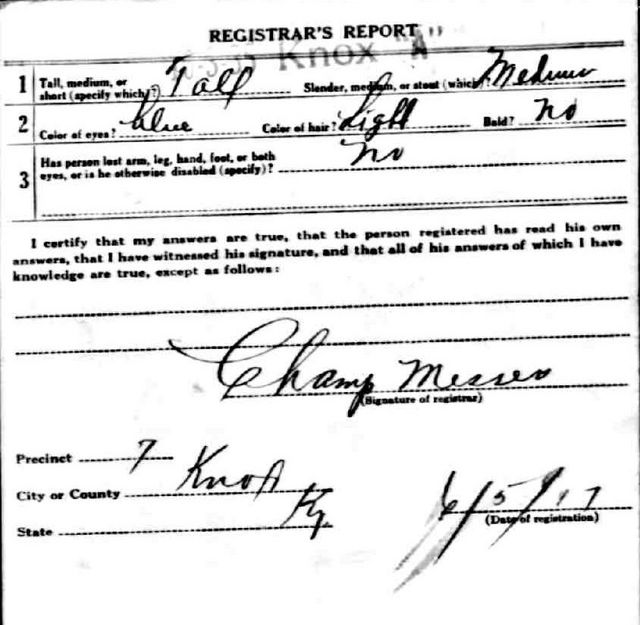 REGISTRAR'S REPORT
Knox "A"
1 Tall, medium, or short (specify which)? Tall Slender, medium, or stout (which)? Medium
2 Color of eyes? blue Color of hair? Light Bald? No
3 Has person lost arm, leg, hand, foot, or both eyes, or is he otherwise disabled (specify)? no
I certify that my answers are true, that the person registered has read his own
answers, that I have witnessed his signature, and that all of his answers of which I have
knowledge are true, except as follows:
Champ Messer
(Signature of registrar)
Precinct 7
City or County Knox
State Ky
6/5/17
(Date of registration)